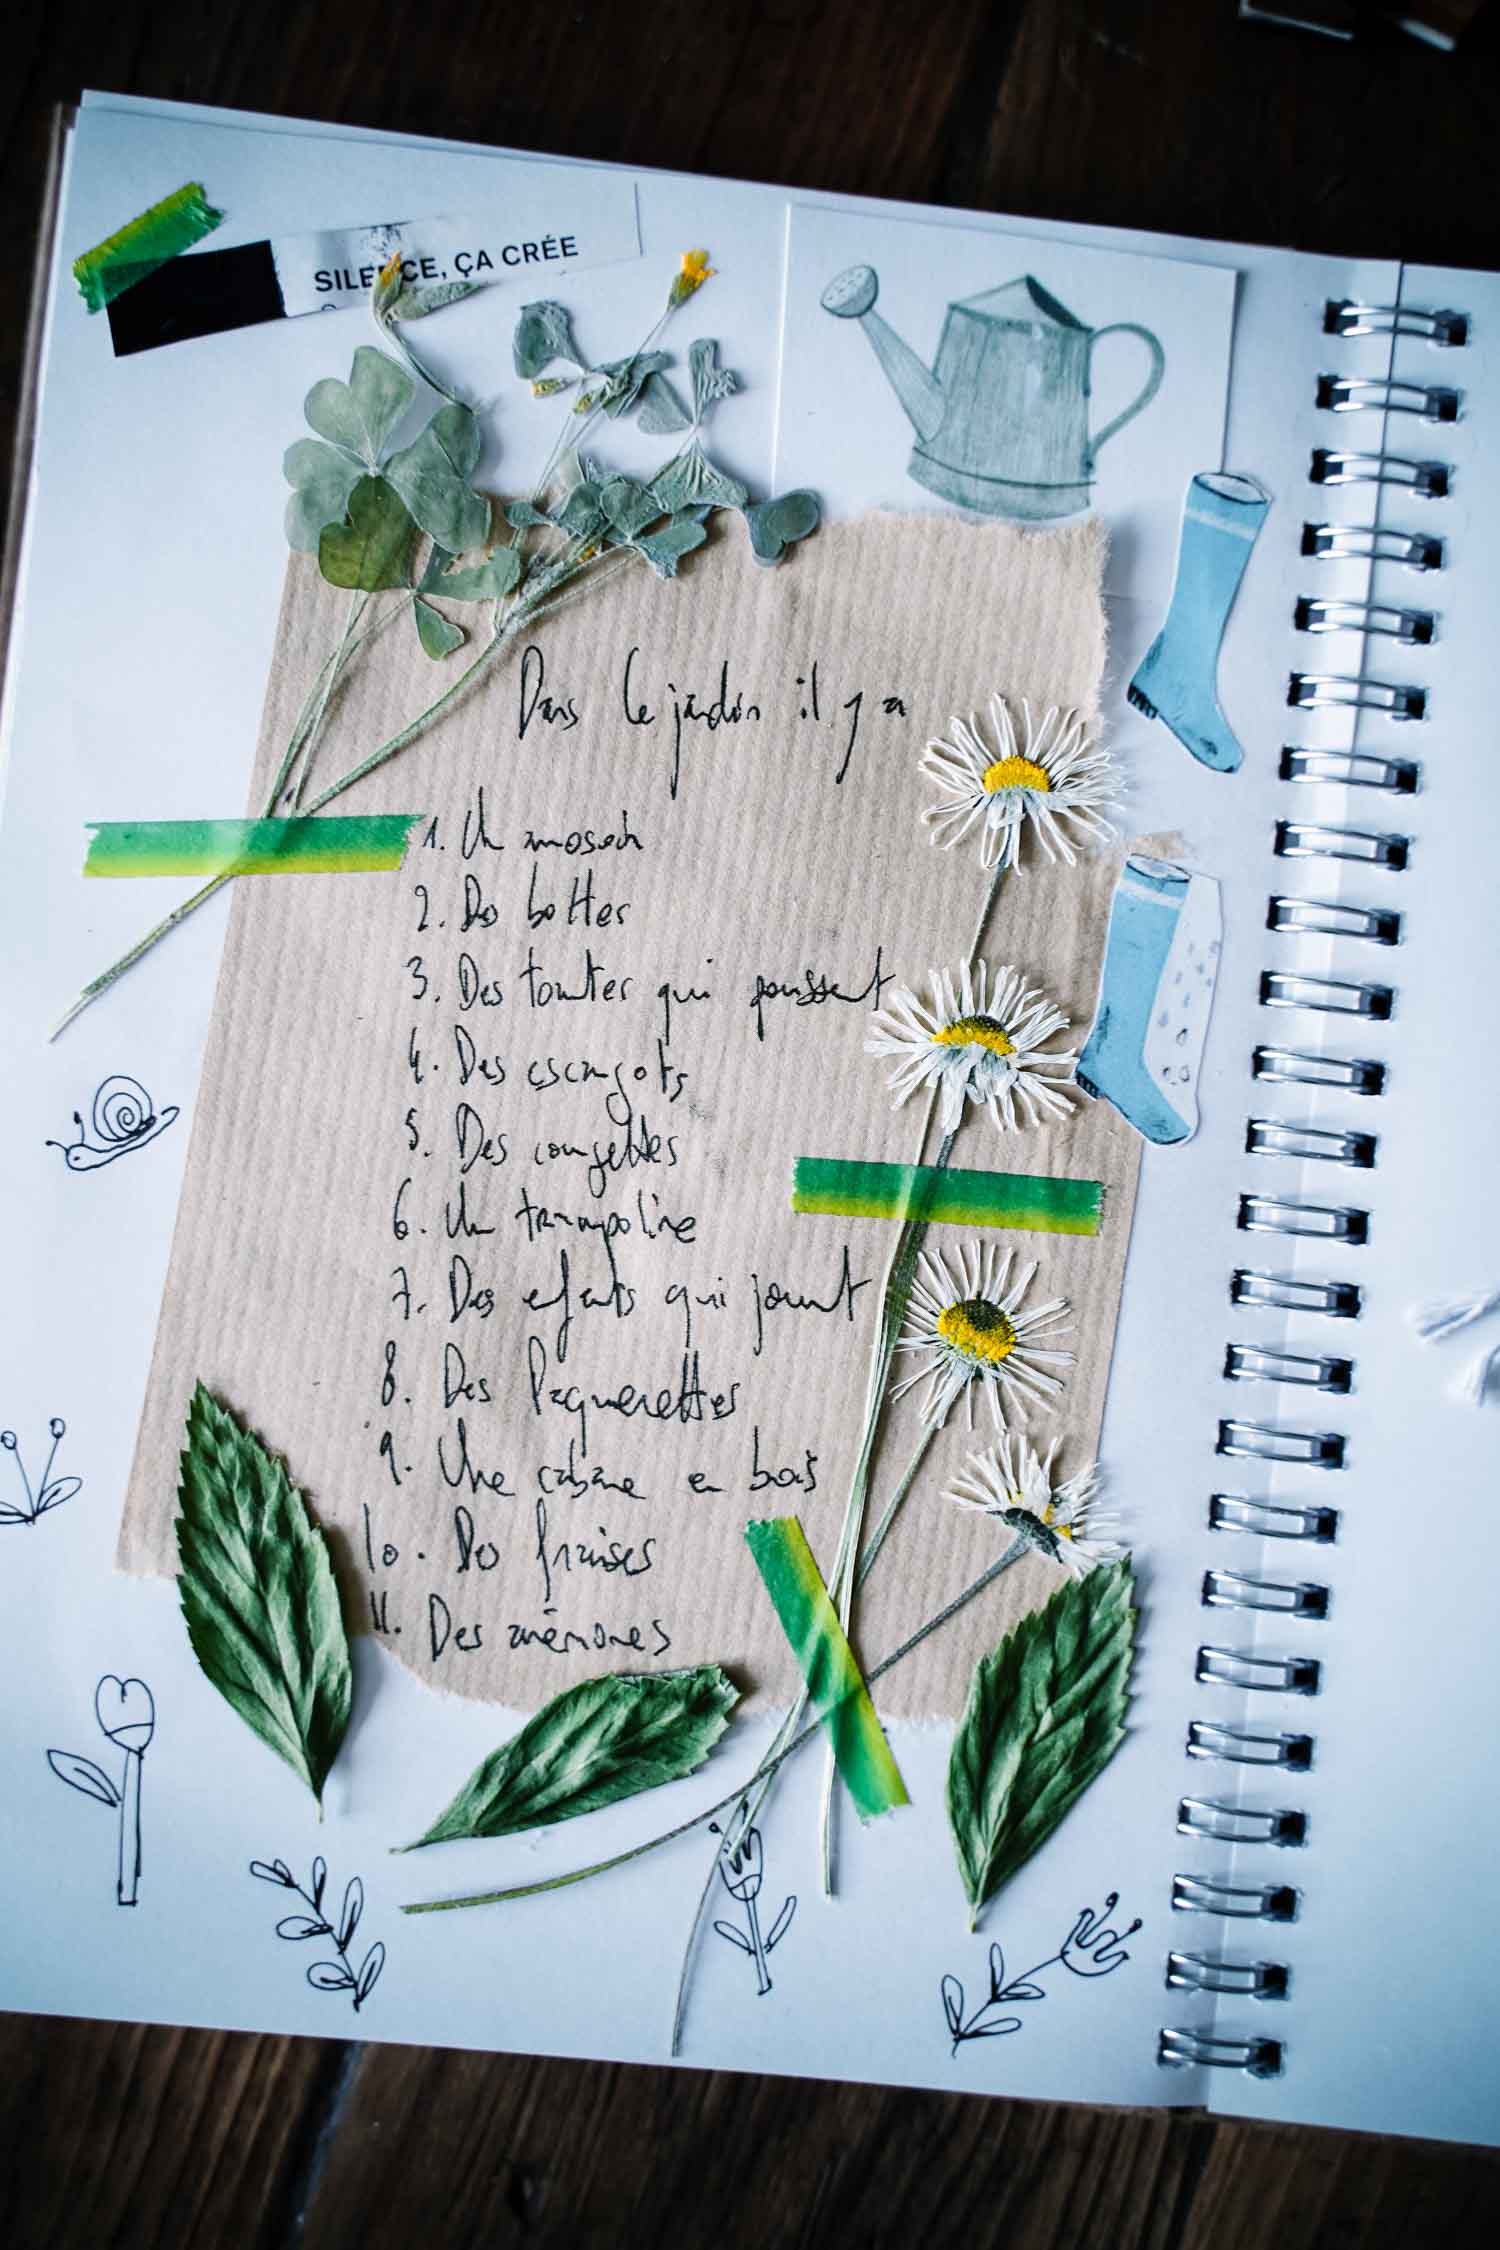 SILENCE, ÇA CRÉE
Dans le jardin il y a
1. Un arrosoir
2. Des bottes
3. Des tomates qui poussent
4. Des escargots
5. Des courgettes
6. Un trampoline
7. Des enfants qui jouent
8. Des Paquerettes
9. Une cabane en bois
10. Des fraises
11. Des anémones